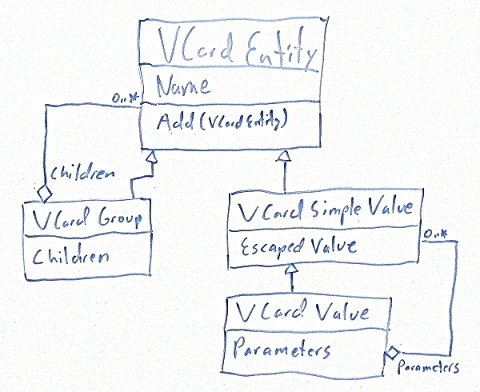 VCard Entity
Name
0..*
Add(VCardEntity)
Children
VCard Group
Children
VCard Simple Value
Escaped Value
0..*
VCard Value
Parameters
Parameters